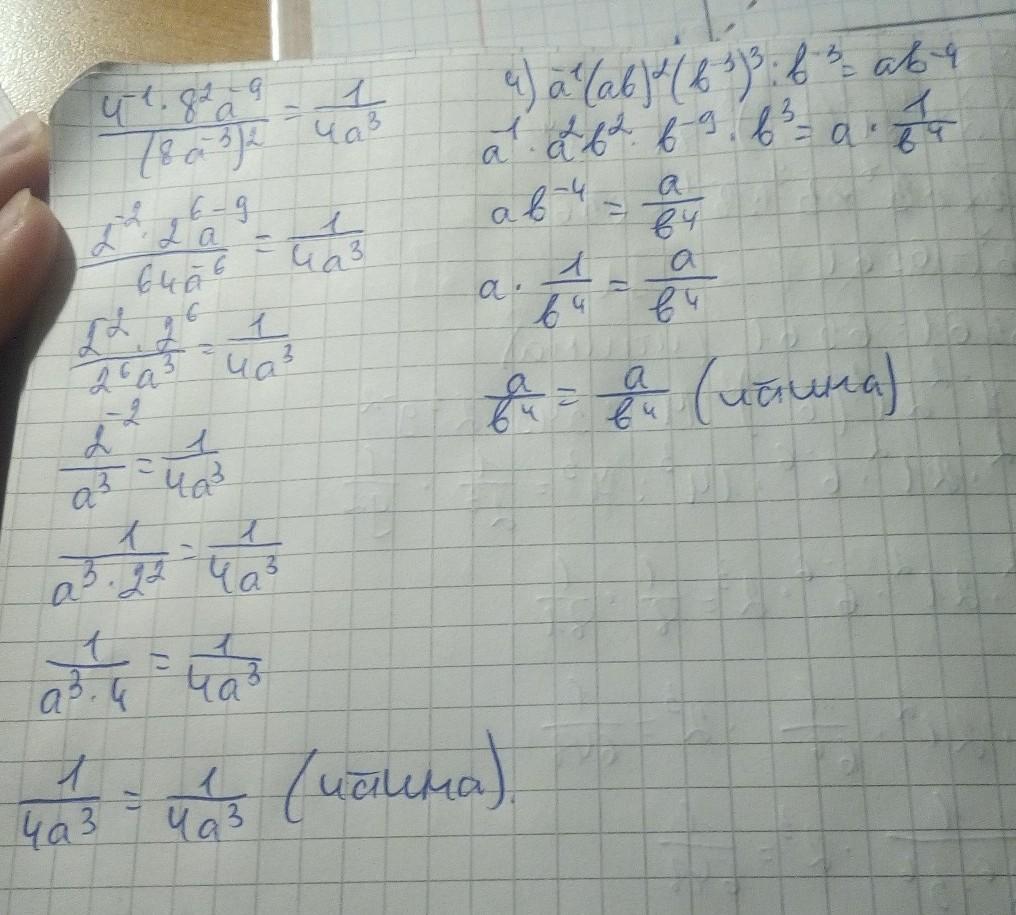 4⁻¹ · 8²a⁻⁹ / (8a⁻³)² = 1 / 4a³
2⁻² · 2⁶a⁻⁹ / 64a⁻⁶ = 1 / 4a³
2⁻² · 2⁶ / 2⁶a³ = 1 / 4a³
2⁻² / a³ = 1 / 4a³
1 / a³ · 2² = 1 / 4a³
1 / a³ · 4 = 1 / 4a³
1 / 4a³ = 1 / 4a³ (чăшма)
4) a⁻¹(ab)²(b⁻³)³ : b⁻³ = ab⁻⁴
a⁻¹ · a²b² · b⁻⁹ · b³ = a · 1 / b⁴
ab⁻⁴ = a / b⁴
a · 1 / b⁴ = a / b⁴
a / b⁴ = a / b⁴